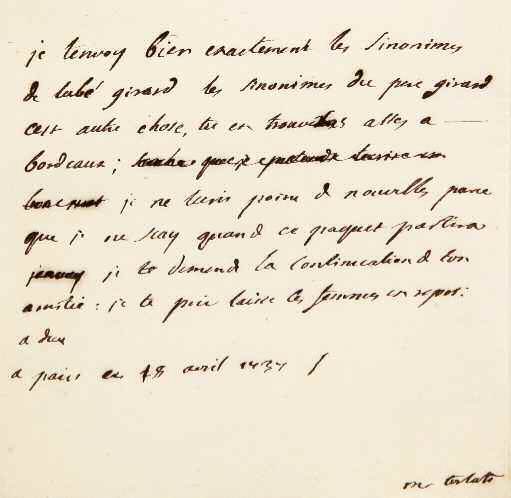 je tenvoy bien exactement les sinonimes
de labé girard les sinonimes du pere girard
cest autre chose, tu en trouveras asses a
bordeaux;
je ne técris point de nouvelles parce
que je ne scay quand ce paquet partira
jenvoy je te demande la continuation de ton
amitié: je te prie laisse les femmes en repos:
adieu
a paris ce 18 avril 1737